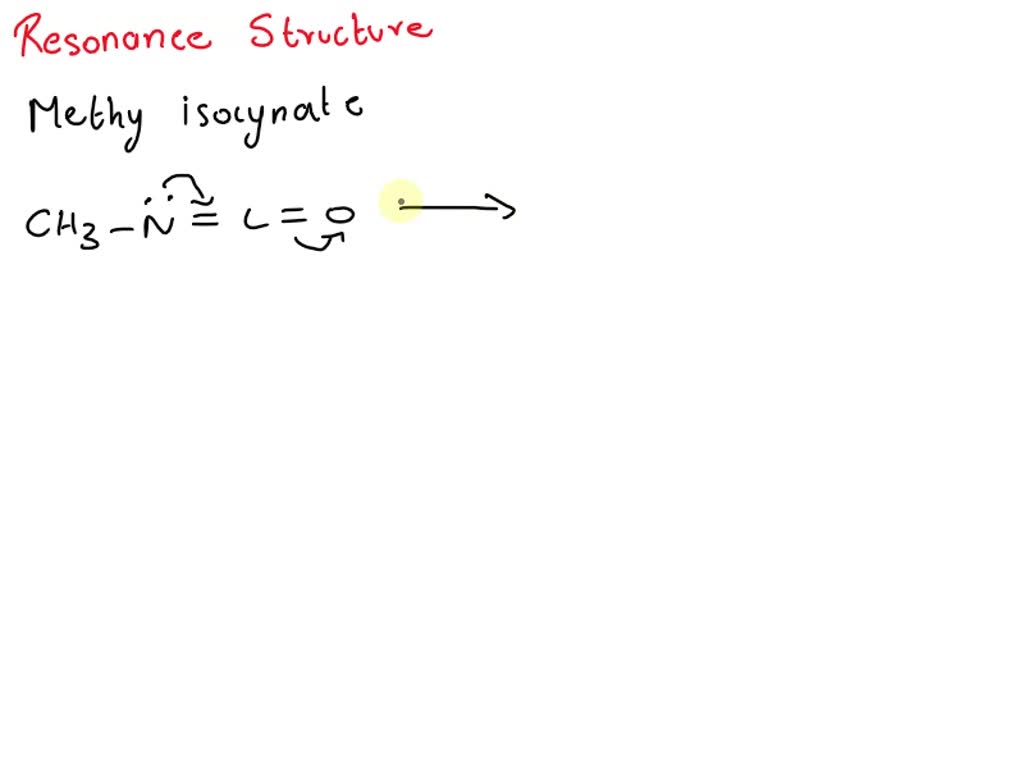 Resonance Structure
Methy isocynate
CH3 – N̈ = C = O ⟶